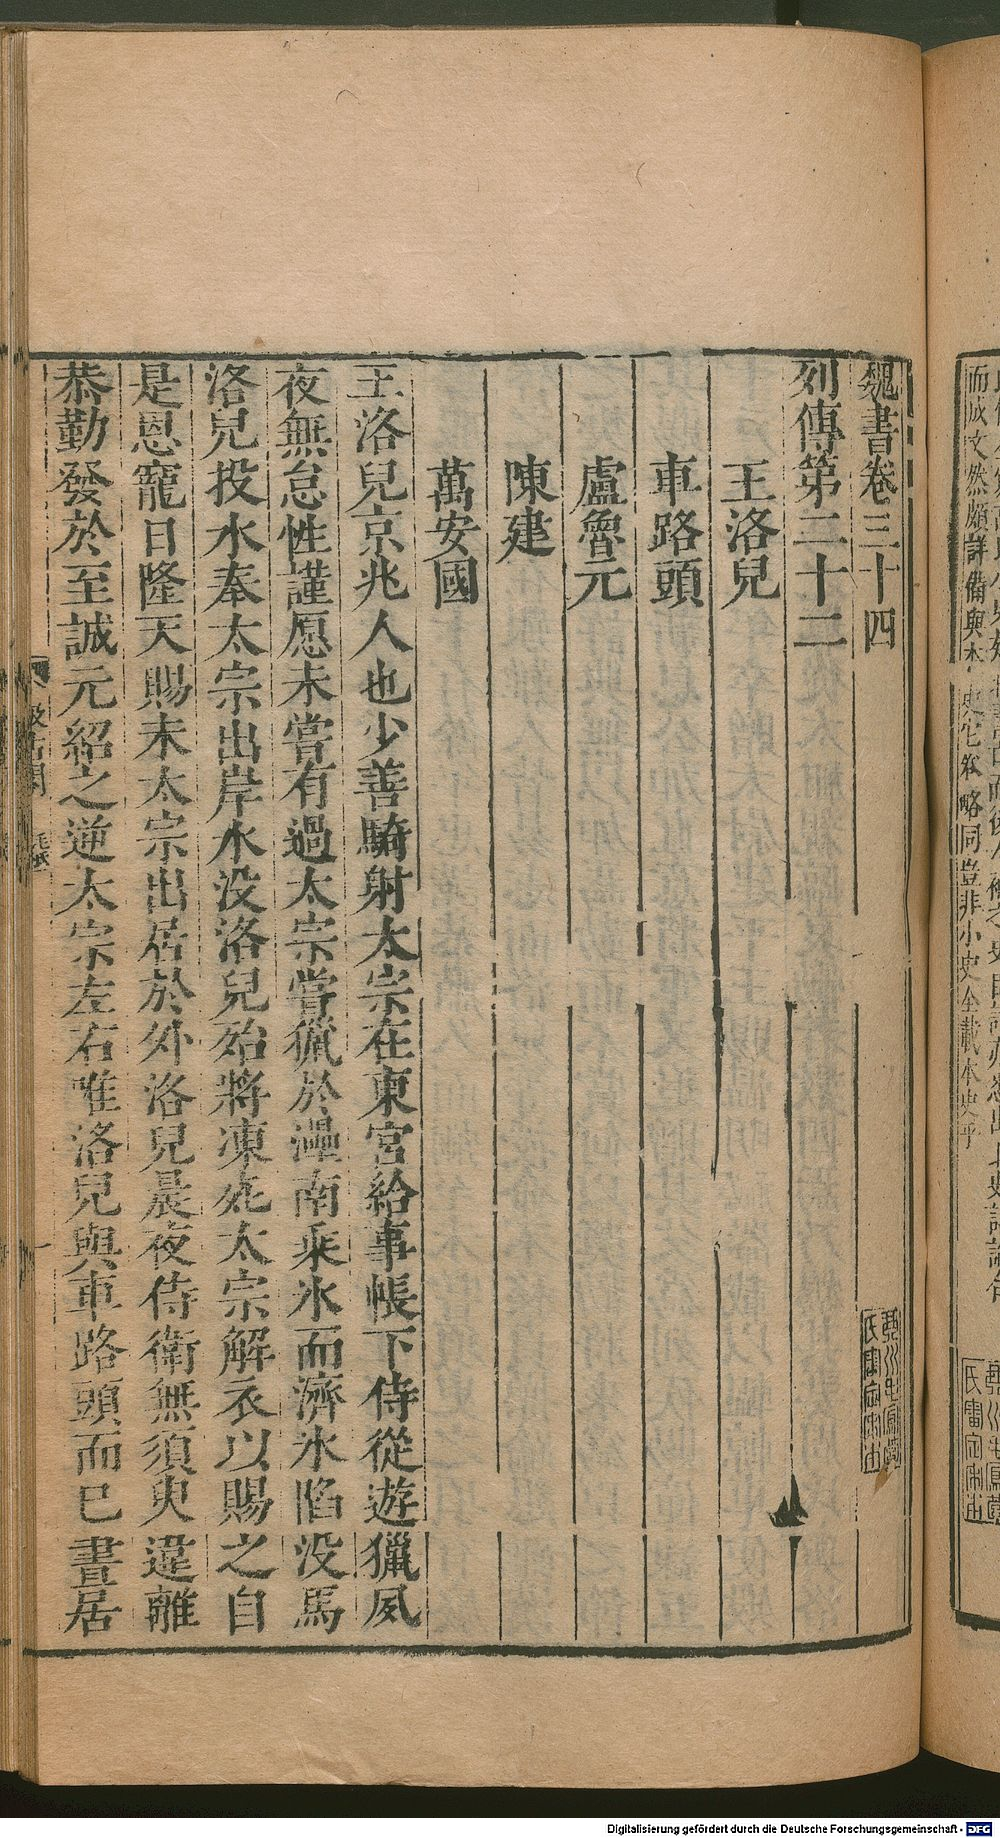 魏書卷三十四
列傳第二十二
王洛兒
車路頭
盧魯元
陳建
萬安國
王洛兒京兆人也少善騎射太宗在東宮給事帳下侍從遊獵夙
夜無怠性謹愿未嘗有過太宗嘗獵於㶟南乘氷而濟氷陷没馬
洛兒投水奉太宗出岸水没洛兒殆將凍死太宗解衣以賜之自
是恩寵日隆天賜末太宗出居於外洛兒晨夜侍衛無須臾違離
恭勤發於至誠元紹之逆太宗左右唯洛兒與車路頭而已晝居
Digitalisierung gefördert durch die Deutsche Forschungsgemeinschaft - DFG